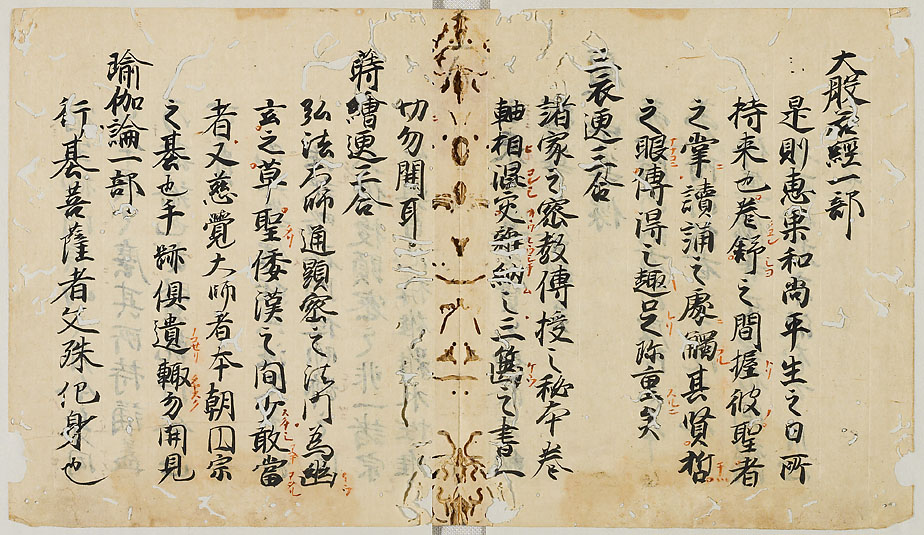 大般若經一部
是則惠果和尚平生之日所
持来也卷舒之間握彼聖者
之掌讀誦之處觸其賢哲
之眼傳得之趣足珎重矣
三衣
諸家之密教傳授之秘本卷
軸相混更雜納之三篋之書一
切勿開耳
蒔繪
弘法大師通顯密之法門為幽
玄之草聖倭漢之間少敢當
者又慈覺大師者本朝因宗
之基也手跡俱遺輙勿開見
瑜伽論一部
行基菩薩者文殊化身也